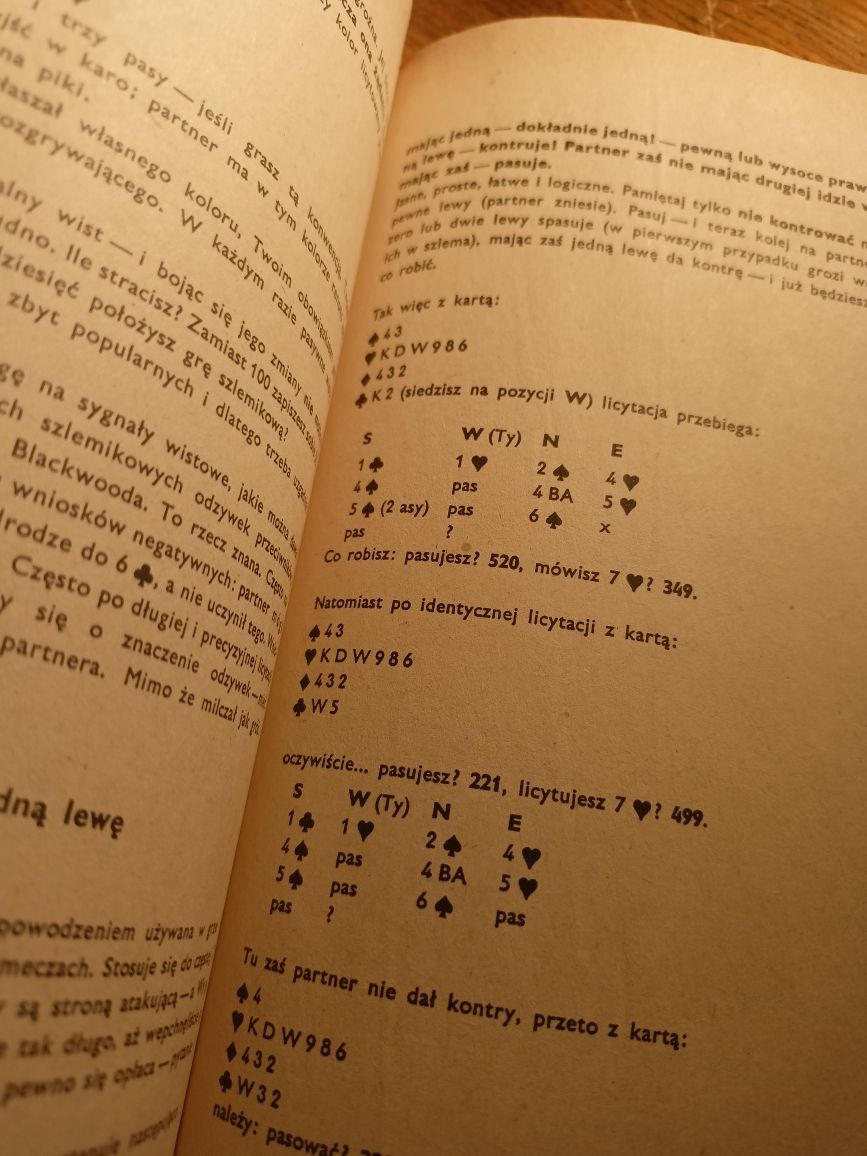 trzy pasy — jeśli grasz tą konwencją
w karo: partner ma w tym kolorze
na piki.
własnego koloru, Twoim obowiązkiem
W każdym razie pasywny
wist — i bojąc się jego zmiany nie
Ile stracisz? Zamiast 100 zapiszesz sobie
dziesięć położysz grę szlemikową?
zbyt popularnych i dlatego trzeba
na sygnały wistowe, jakie można
szlemikowych odzywek przeciwników
Blackwooda. To rzecz znana. Często
wniosków negatywnych: partner
do 6 ♣, a nie uczynił tego.
Często po długiej i precyzyjnej
się o znaczenie odzywek —
partnera. Mimo że milczał jak
lewę
powodzeniem używana w
meczach. Stosuje się do
są stroną atakującą — a
tak długo, aż
pewno się opłaca —
mając jedną — dokładnie jedną! — pewną lub wysoce
na lewę — kontruje! Partner zaś nie mając drugiej idzie
mając zaś — pasuje.
Jasne, proste, łatwe i logiczne. Pamiętaj tylko nie kontrować
pewne lewy (partner zniesie). Pasuj — i teraz kolej na
zero lub dwie lewy spasuje (w pierwszym przypadku grozi
ich w szlema), mając zaś jedną lewę da kontrę — i już będziesz
co robić.
Tak więc z kartą:
♠ 4 3
♥ K D W 9 8 6
♦ 4 3 2
♣ K 2 (siedzisz na pozycji W) licytacja przebiega:
S W (Ty) N E
1 ♣ 1 ♥ 2 ♠ 4 ♥
4 ♠ pas 4 BA 5 ♥
5 ♠ (2 asy) pas 6 ♠ x
pas ?
Co robisz: pasujesz? 520, mówisz 7 ♥? 349.
Natomiast po identycznej licytacji z kartą:
♠ 4 3
♥ K D W 9 8 6
♦ 4 3 2
♣ W 5
oczywiście... pasujesz? 221, licytujesz 7 ♥? 499.
S W (Ty) N E
1 ♣ 1 ♥ 2 ♠ 4 ♥
4 ♠ pas 4 BA 5 ♥
5 ♠ pas 6 ♠ pas
pas ?
Tu zaś partner nie dał kontry, przeto z kartą:
♠ 4
♥ K D W 9 8 6
♦ 4 3 2
♣ W 3 2
należy: pasować?